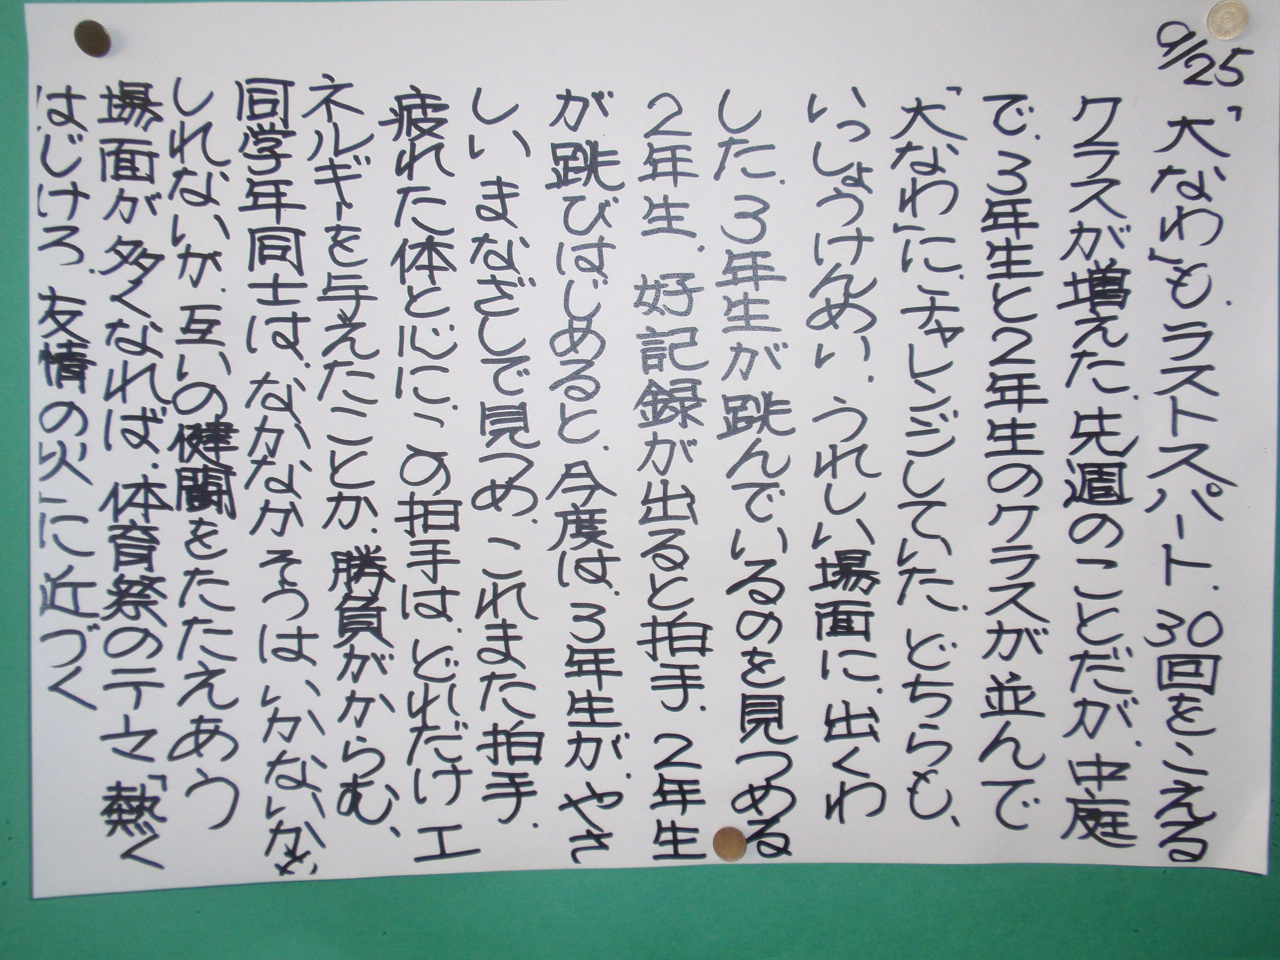 9/25
「大なわ」も、ラストスパート、30回をこえる
クラスが増えた。先週のことだが、中庭
で、3年生と2年生のクラスが並んで
「大なわ」に、チャレンジしていた。どちらも、
いっしょうけんめい、うれしい場面に、出くわ
した。3年生が跳んでいるのを見つめる
2年生、好記録が出ると拍手、2年生
が跳びはじめると、今度は、3年生が、やさ
しい まなざしで見つめ、これまた拍手、
疲れた体と心に、この拍手は、どれだけ エ
ネルギーを与えたことか、勝負がからむ、
同学年同士は、なかなか そうは、いかないかも
しれないが、互いの健闘をたたえあう
場面が多くなれば、体育祭のテーマ「熱く
はじけろ、友情の火」に近づく